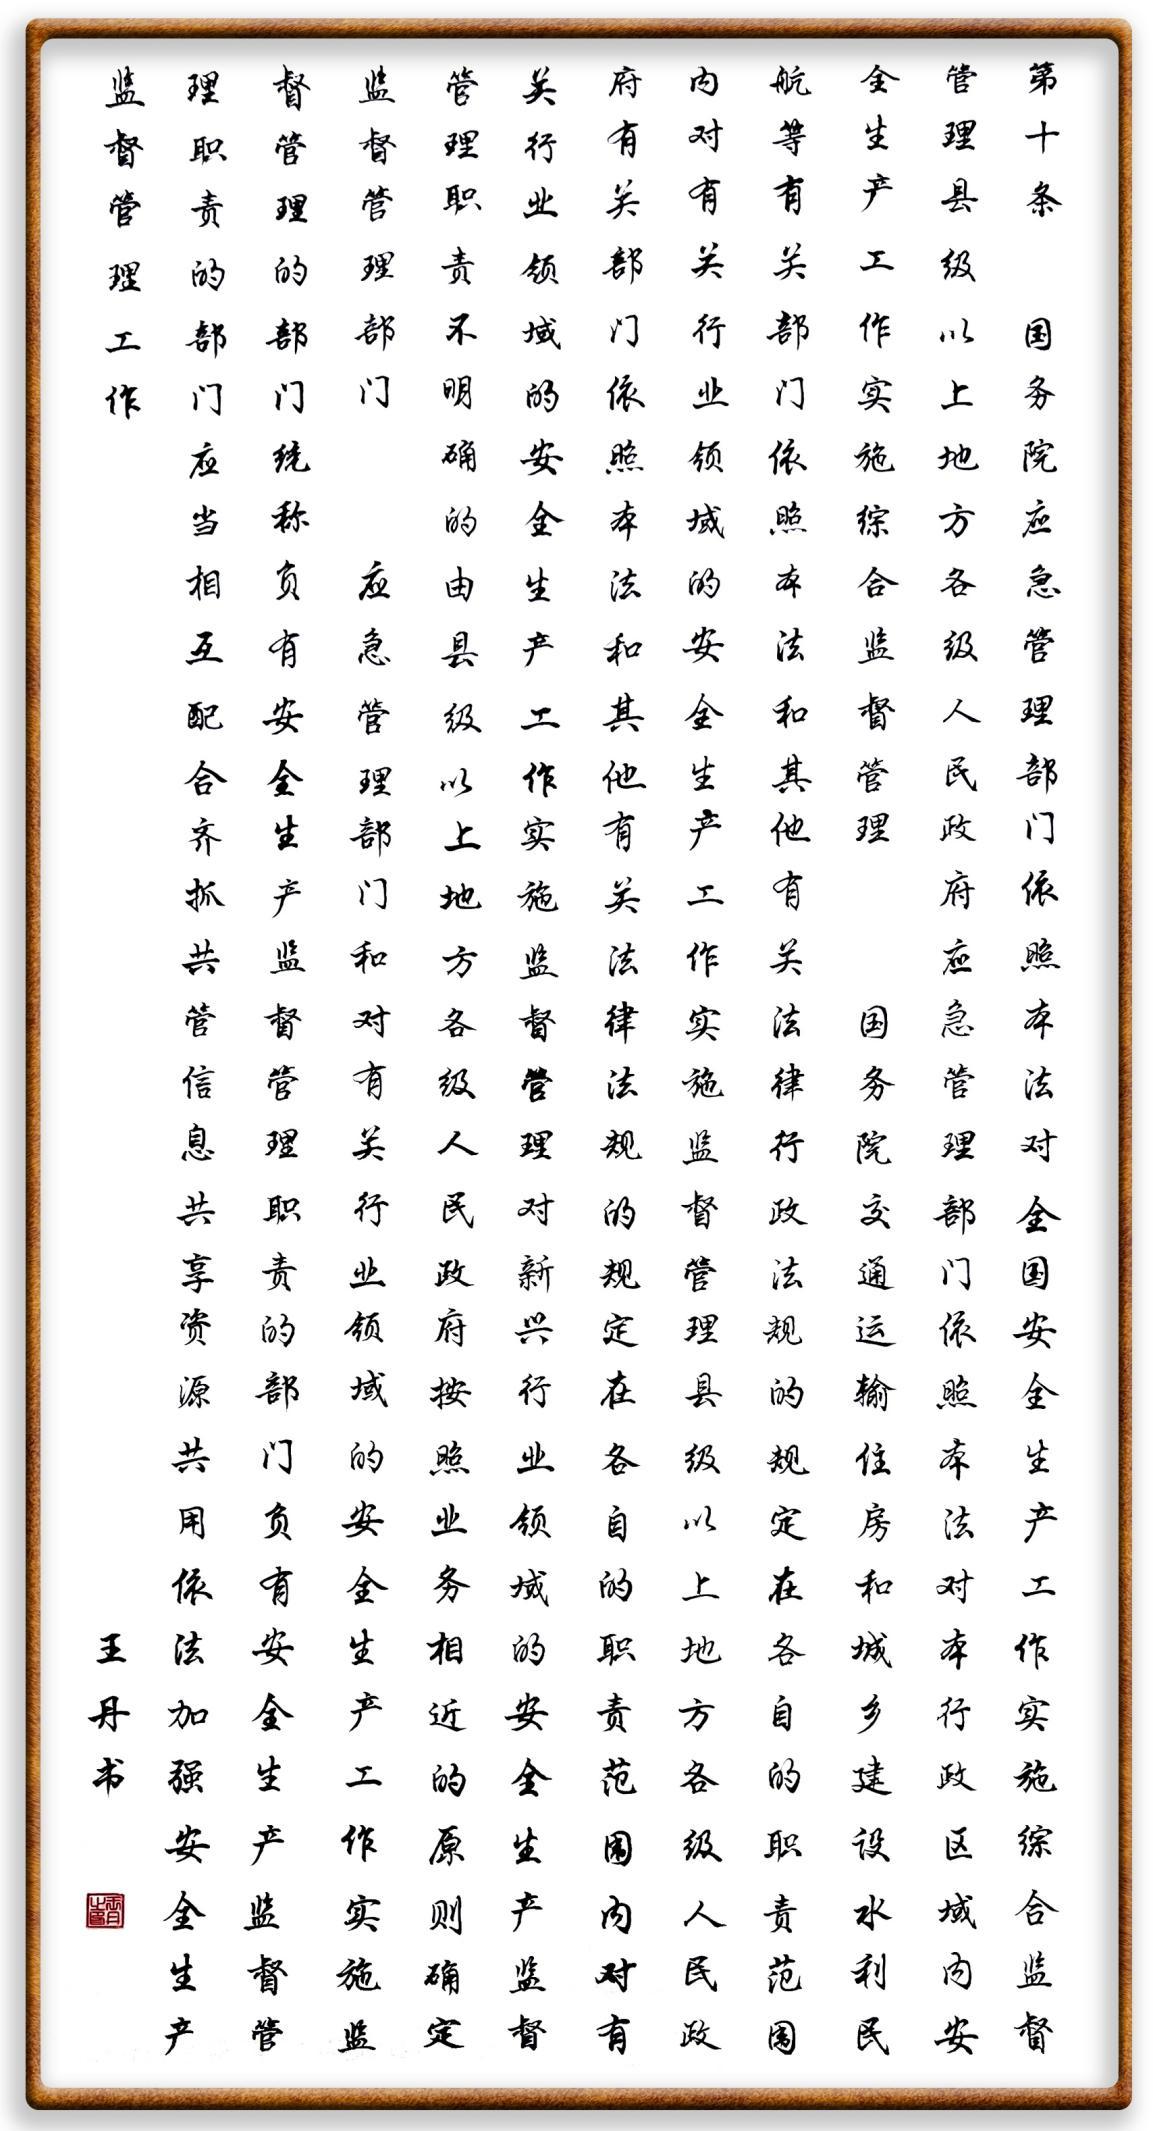 第十条 国务院应急管理部门依照本法对全国安全生产工作实施综合监督
管理县级以上地方各级人民政府应急管理部门依照本法对本行政区域内安
全生产工作实施综合监督管理 国务院交通运输住房和城乡建设水利民
航等有关部门依照本法和其他有关法律行政法规的规定在各自的职责范围
内对有关行业领域的安全生产工作实施监督管理县级以上地方各级人民政
府有关部门依照本法和其他有关法律法规的规定在各自的职责范围内对有
关行业领域的安全生产工作实施监督管理对新兴行业领域的安全生产监督
管理职责不明确的由县级以上地方各级人民政府按照业务相近的原则确定
监督管理部门 应急管理部门和对有关行业领域的安全生产工作实施监
督管理的部门统称负有安全生产监督管理职责的部门负有安全生产监督管
理职责的部门应当相互配合齐抓共管信息共享资源共用依法加强安全生产
监督管理工作
王丹书